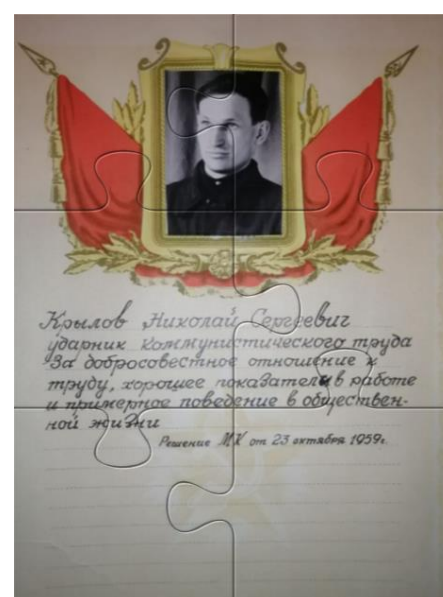 Крылов Николай Сергеевич
ударник коммунистического труда
За добросовестное отношение к
труду, хорошее показатели в работе
и примерное поведение в обществен-
ной жизни
Решение МК от 23 октября 1959г.